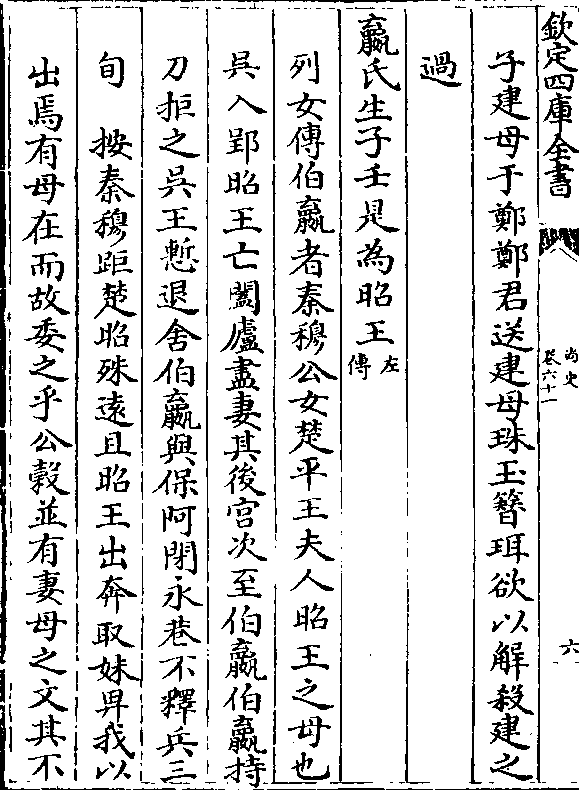 欽定四庫全書
尚史
卷六十一
六
子建母于鄭鄭君送建母珠玉簪珥欲以解殺建之
過
嬴氏生子壬是為昭王左傳
列女傳伯嬴者秦穆公女楚平王夫人昭王之母也
吳入郢昭王亡闔廬盡妻其後宮次至伯嬴伯嬴持
刀拒之吳王慙退舍伯嬴與保阿閉永巷不釋兵三
旬　按秦穆距楚昭殊遠且昭王出奔取妹畀我以
出焉有母在而故委之乎公穀並有妻母之文其不